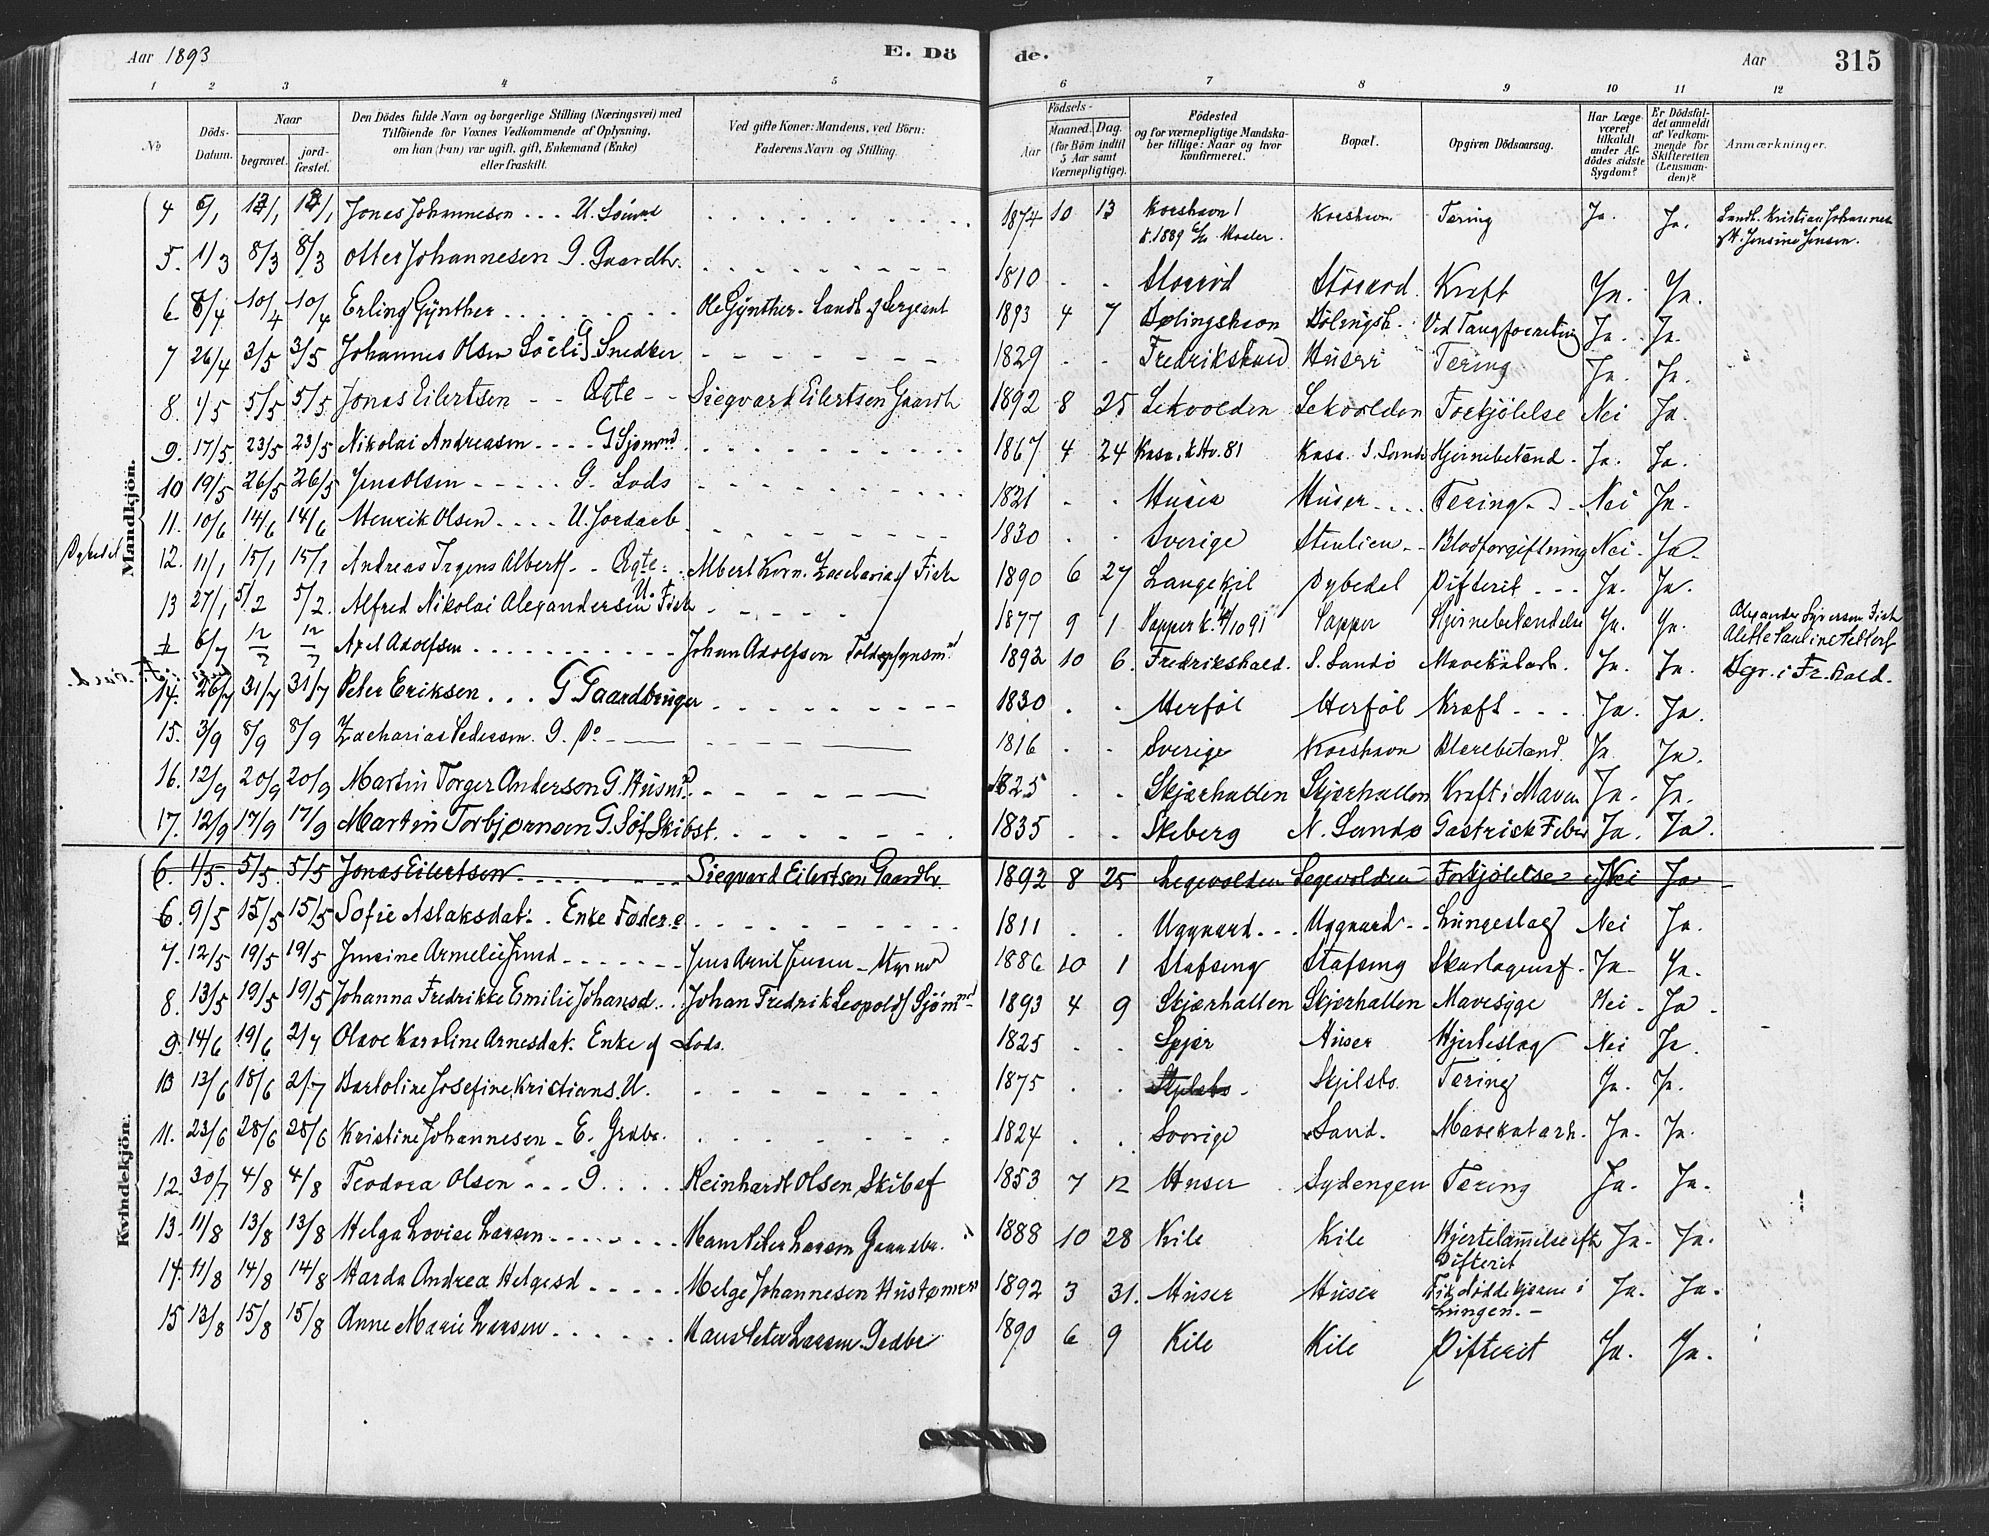 Aar 1893
E. Dö
de.
Aar
315
1 2 3 4 5 6 7 8 9 10 11 12
No
Döds-Datum.
Naar
begravet.
jordfæstet.
Den Dödes fulde Navn og borgerlige Stilling (Næringsvei) med Tilföiende for Voxnes Vedkommende af Oplysning, om han (hun) var ugift, gift, Enkemand (Enke) eller fraskilt.
Ved gifte Koner: Mandens, ved Börn: Faderens Navn og Stilling.
Födsels-
Aar
Maaned. Dag. (for Börn indtil 5 Aar samt Værnepligtige).
Födested og for værnepligtige Mandskaber tillige: Naar og hvor konfirmeret.
Bopæl.
Opgiven Dödsaarsag.
Har Læge været tilkaldt under Afdödes sidste Sygdom?
Er Dödsfaldet anmeldt af Vedkommende for Skifteretten (Lensmanden)?
Anmærkninger.
Mandkjön.
4 6/1 Jonas Johannesen . . . U. Sömnd 1874 10 13 Korshavn Korshavn Tæring Ja. Ja. Landh. Kristian Johannes
k. 1889 Jensine Jensen.
5. 1/3 8/3 8/3 Otter Johannesen G. Gaardbr. 1810 - - Storöd Kræft Ja. Ja.
6 8/4 10/4 10/4 Erling Gÿnther Ole Gÿnther. Landh. of Sergeant 1893 4 7 Dölingsh. Ved Tangforretning Ja. Ja.
7 26/4 3/5 3/5 Johannes Olsen G. Snedker 1829 - - Fredrikshald Huser Tæring Ja. Ja.
8. 1/5 5/5 5/5 Jonas Eilertsen - - Ægte - - Siegvard Eilertsen Gaardb 1892 8 25 Lekvolden Lekvolden Forkjölelse Nei Ja.
9. 17/5 23/5 23/5 Nikolai Andreasen - - - - G Sjömnd 1867 4 24 Kasa, k Hv. 81 Kasa. S. Sandö Hjernebetænd. Ja. Ja.
10 19/5 26/5 26/5 Jens Olsen - - - - - G. Lods 1821 - - Huser Huser Tæring Nei Ja.
11. 10/6 14/6 14/6 Henrik Olsen - - - - U. Jordarb. 1830 . . Sverige Stenlien Blodforgiftning Nei. Ja.
Dybedal
12. 11/1 15/1 15/1 Andreas Irgens Albertf - - Ægte - Albert Korn. Zachariasf Fisk 1890 6 27 Langekil Dybedal Difterit - - - Ja. Ja.
13 27/1 5/2 5/2. Alfred Nikolai Alexandersen U. Fisk 1877 9 1 Papper k. 4/10 91 Papper Hjernebetændelse Ja. Ja. Alexander Syversen Fisk
6/7 12/7 12/7 Axel Adolfsen Johan Adolfsen Toldopsynsmd 1892 10 6. Fredrikshald. S. Sandö Mavekatarh. Ja. Ja. Begr. i Fr. hald.
14. 26/7 31/7 31/7 Peter Eriksen . . . G Gaardbruger 1830 . . Herföl Herföl Kræft - - - Ja. Ja.
15. 3/9 8/9 8/9 Zacharias Pedersen. G. Do 1816 . . Sverige Korshavn Blærebetænd. Ja. Ja.
16. 12/9 20/9 20/9 Martin Torger Anderson G. Husmd. 1825 . . Skjærhallen Skjærhallen Kræft i Maven Ja. Ja.
17. 12/9 17/9 17/9 Martin Torbjørnsen G. Söf Skibst. 1835 . . Skiberg N. Sandö Gastrisk Feber Ja. Ja.
Kvindekjön.
6. 1/5. 5/5. 5/5 Jonas Eilertsen Siegvard Eilertsen Gaardbr 1892 8 25 Legevolden Legevolden Forkjölelse Nei Ja
6. 9/5 15/5 15/5 Sofie Aslaksdat. Enke Föder. 1811 . . Uggaard Uggaard Lungeslag Nei Ja.
7. 12/5 19/5 19/5 Jensine Armelie Jensd Jens Arnt Jensen 1886 10 1 Stafseng Stafseng Skarlagensf. Ja. Ja.
8. 13/5 19/5 19/5 Johanna Fredrikke Emilie Johansd. Johan Fredrik Leopoldf Sjömnd 1893 4 9 Skjærhallen Skjærhallen Mavesyge Nei - Ja
9. 14/6 19/6 2/7 Olave Karoline Arnesdat. Enke af Lods. 1825 . . Spjær Huser Hjerteslag Nei Ja.
10 13/6 18/6 2/7 Bartoline Josefine Kristians. U. 1875 . . Skjelsbo Skjelsbo. Tæring Ja. Ja.
11. 23/6 28/6 28/6 Kristine Johannesen - E. Grdbr. 1824 . . Sverige Sand. Mavekatarh. Ja. Ja.
12. 30/7 4/8 4/8 Teodora Olsen - - - G. Reinhardt Olsen Skibsf 1853 7 12 Huser Sydengen Tæring Ja. Ja.
13. 11/8 13/8 13/8 Helga Lovise Larsen Hans Peter Larsen Gaardbr. 1888 10 28 Kile Kile Hjertelammelse eft. Difterit Ja. Ja.
14. 11/8 14/8 14/8 Harda Andrea Helgesd Helge Johannesen Hustömmer 1892 3 31. Huser Huser Lungen. Ja. Ja.
15 13/8 15/8 15/8 Anne Marie Larsen Hans Peter Larsen Grdbr 1890 6 9 Kile Kile Difterit Ja. Ja.